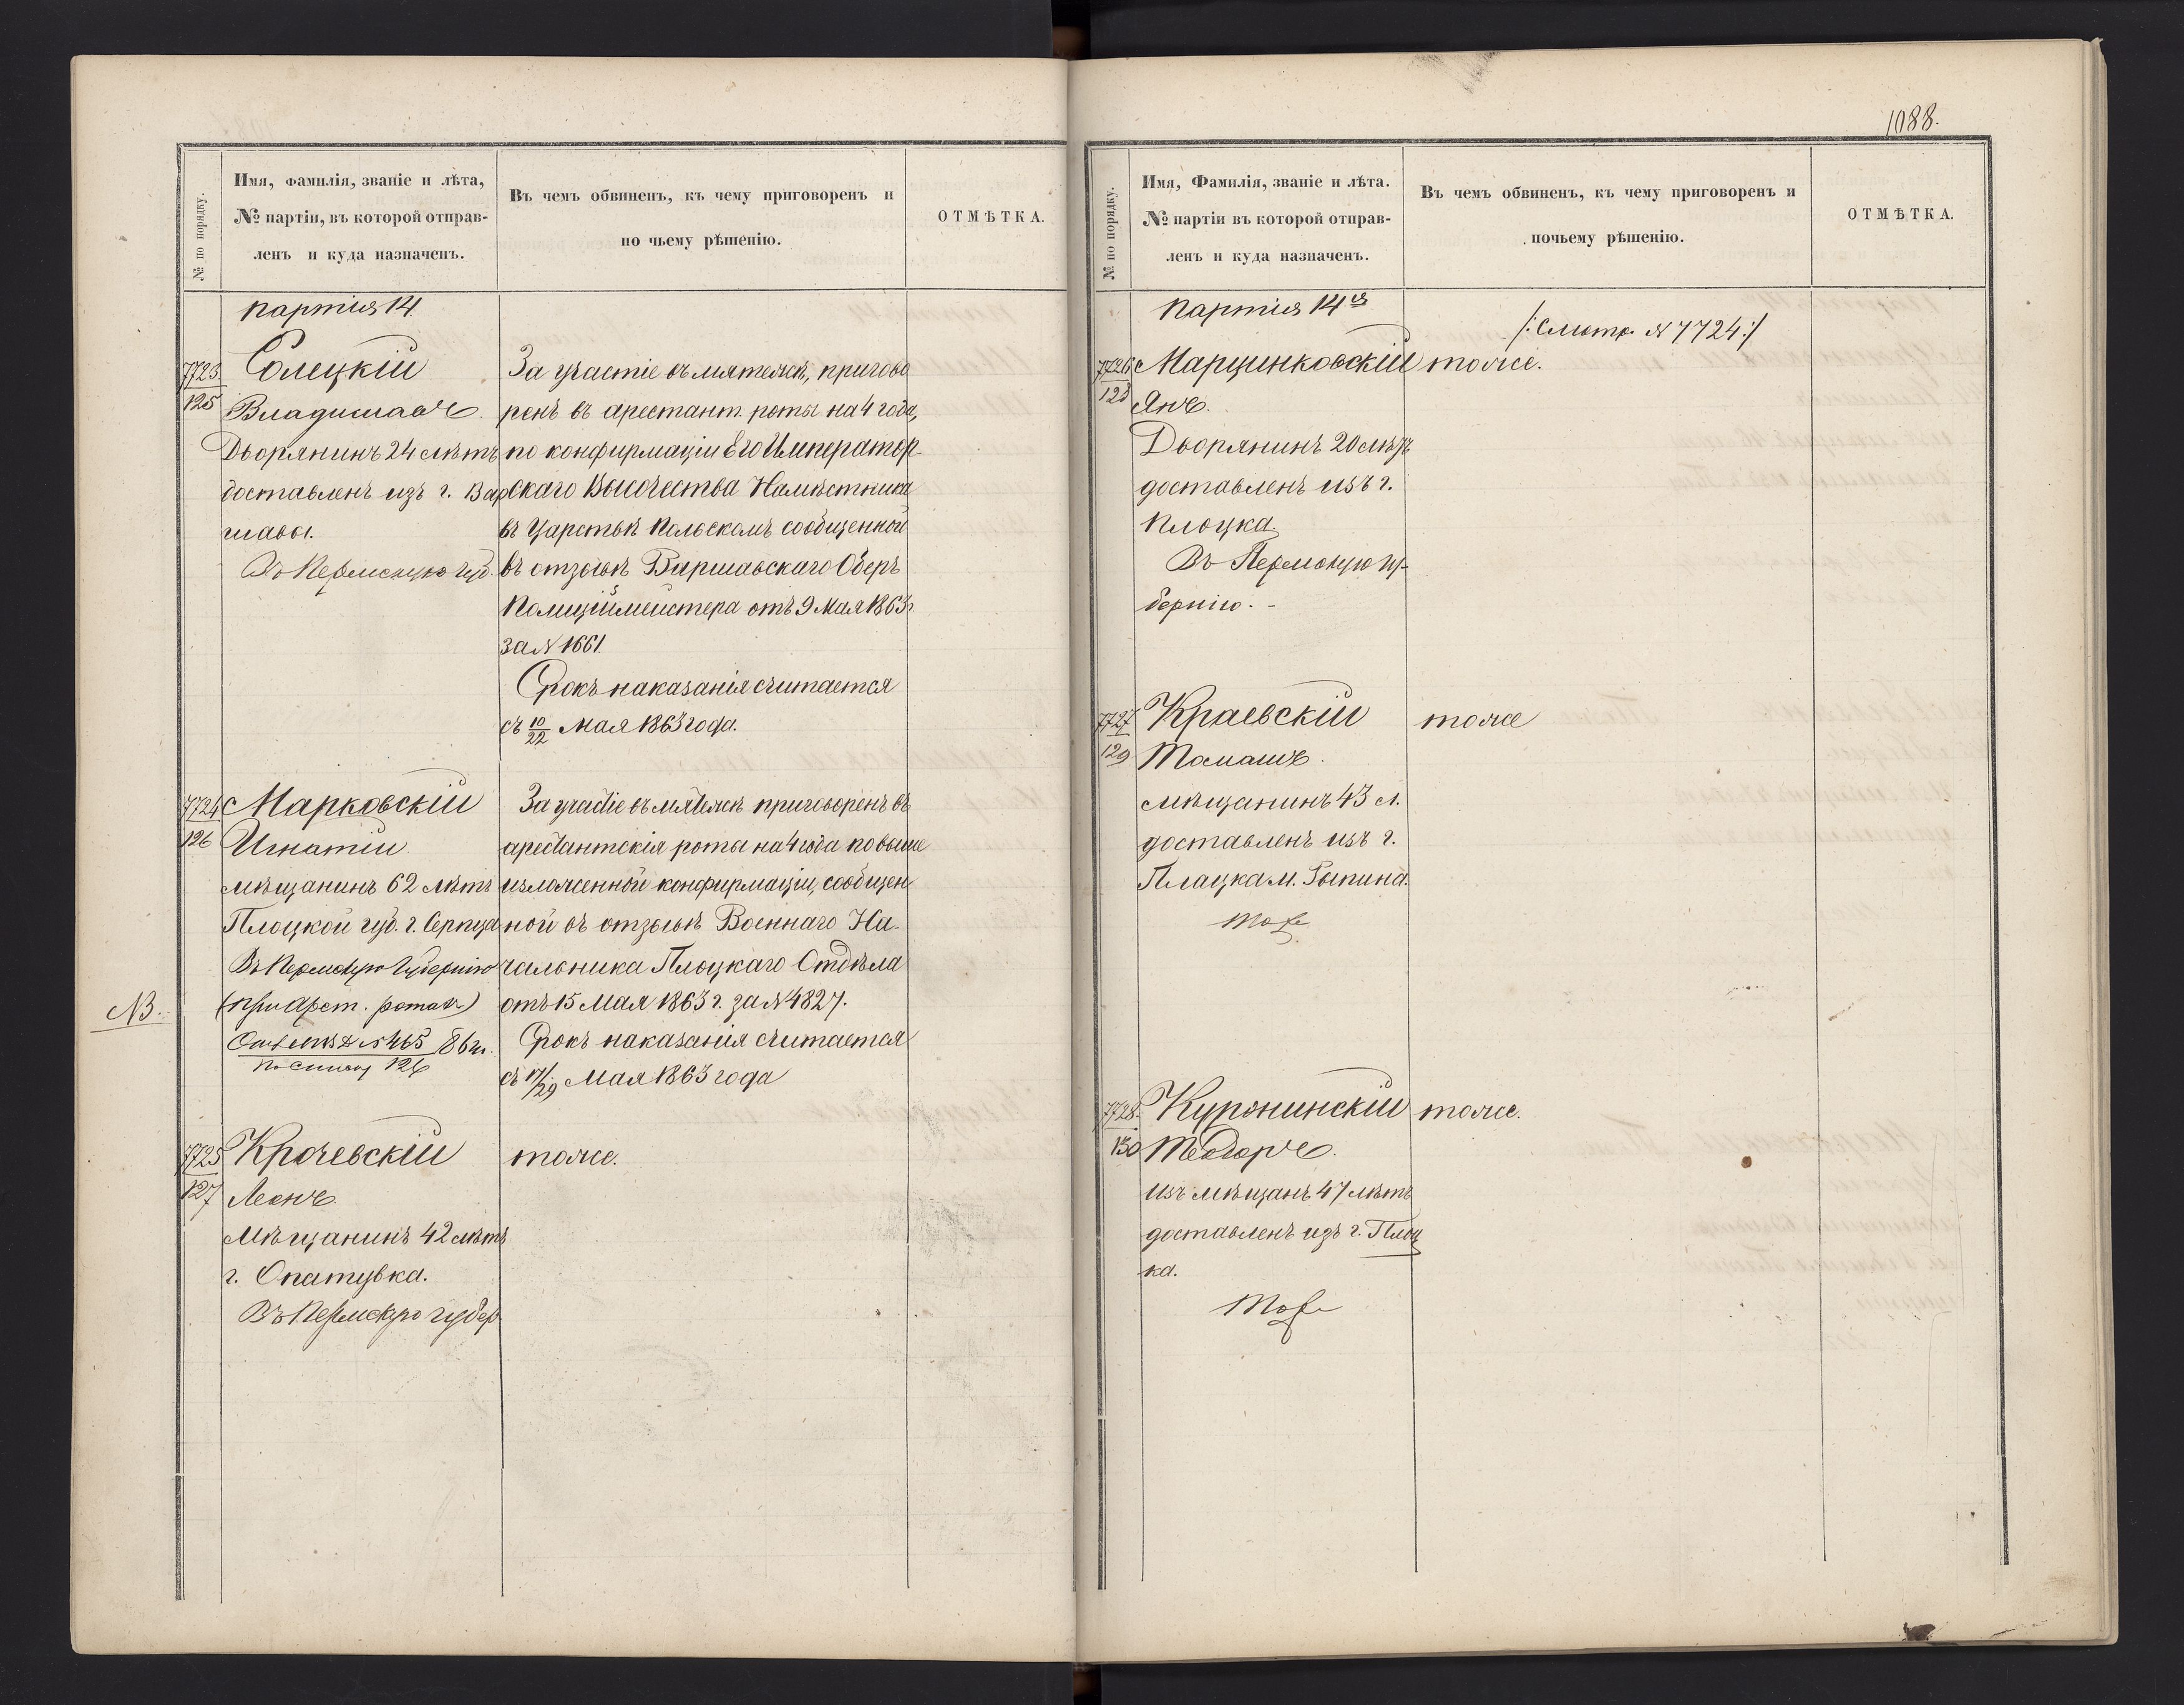 № по порядку.
Имя, фамилія, званіе и лѣта,
№ партіи, въ которой отправ-
ленъ и куда назначенъ.
Въ чемъ обвиненъ, къ чему приговоренъ и
по чьему рѣшенію.
ОТМѢТКА.
партія 14
7723
125
Солецкій
Владиславъ
Дворянинъ 24 лѣтъ
доставленъ изъ г. Вар
шавы.
Въ Пермскую губ.
За участіе въ мятежѣ, пригово
ренъ въ арестант. роты на 4 года,
по конфирмаціи Его Император-
скаго Высочества Намѣстника
въ Царствѣ Польскомъ сообщенной
въ отзывѣ Варшавскаго Оберъ
Полиціймейстера отъ 9 Мая 1863 г.
за № 1661
Срокъ наказанія считается
съ 10/22 Мая 1863 года.
7724
126
Марковскій
Игнатій
мѣщанинъ 62 лѣтъ
Плоцкой губ. г. Серпца
Въ Пермскую Губернію
(при Арест. ротах)
№ 465
по списку 126
NB.
За участіе въ мятежѣ приговоренъ въ
арестантскія роты на 4 года по выше
изложенной конфирмаціи, сообщен
ной въ отзывѣ Военнаго На-
чальника Плоцкаго Отдѣла
отъ 15 Мая 1863 г. за № 4827.
Срокъ наказанія считается
съ 17/29 Мая 1863 года
7725
127
Крочевскій
Леонъ
Мѣщанинъ 42 лѣтъ
г. Опатувка.
Въ Пермскую губер
тоже.
1088.
№ по порядку.
Имя, Фамилія, званіе и лѣта.
№ партіи въ которой отправ-
ленъ и куда назначенъ.
Въ чемъ обвиненъ, къ чему приговоренъ и
почьему рѣшенію.
ОТМѢТКА.
партія 14я
/: Смотр. № 7724 :/
7726
128
Марцинковскій
Янъ.
Дворянинъ 20 лѣтъ
доставленъ изъ г.
Плоцка.
Въ Пермскую гу-
бернію. -
тоже.
7727
129
Краевскій
Томашъ.
мѣщанинъ 43 л.
доставленъ изъ г.
Плацка м. Рыпина.
тоже
тоже
7728.
130
Куронинскій
Теодоръ.
изъ мѣщанъ 47 лѣтъ
доставленъ изъ г. Плоц
ка.
тоже
тоже.